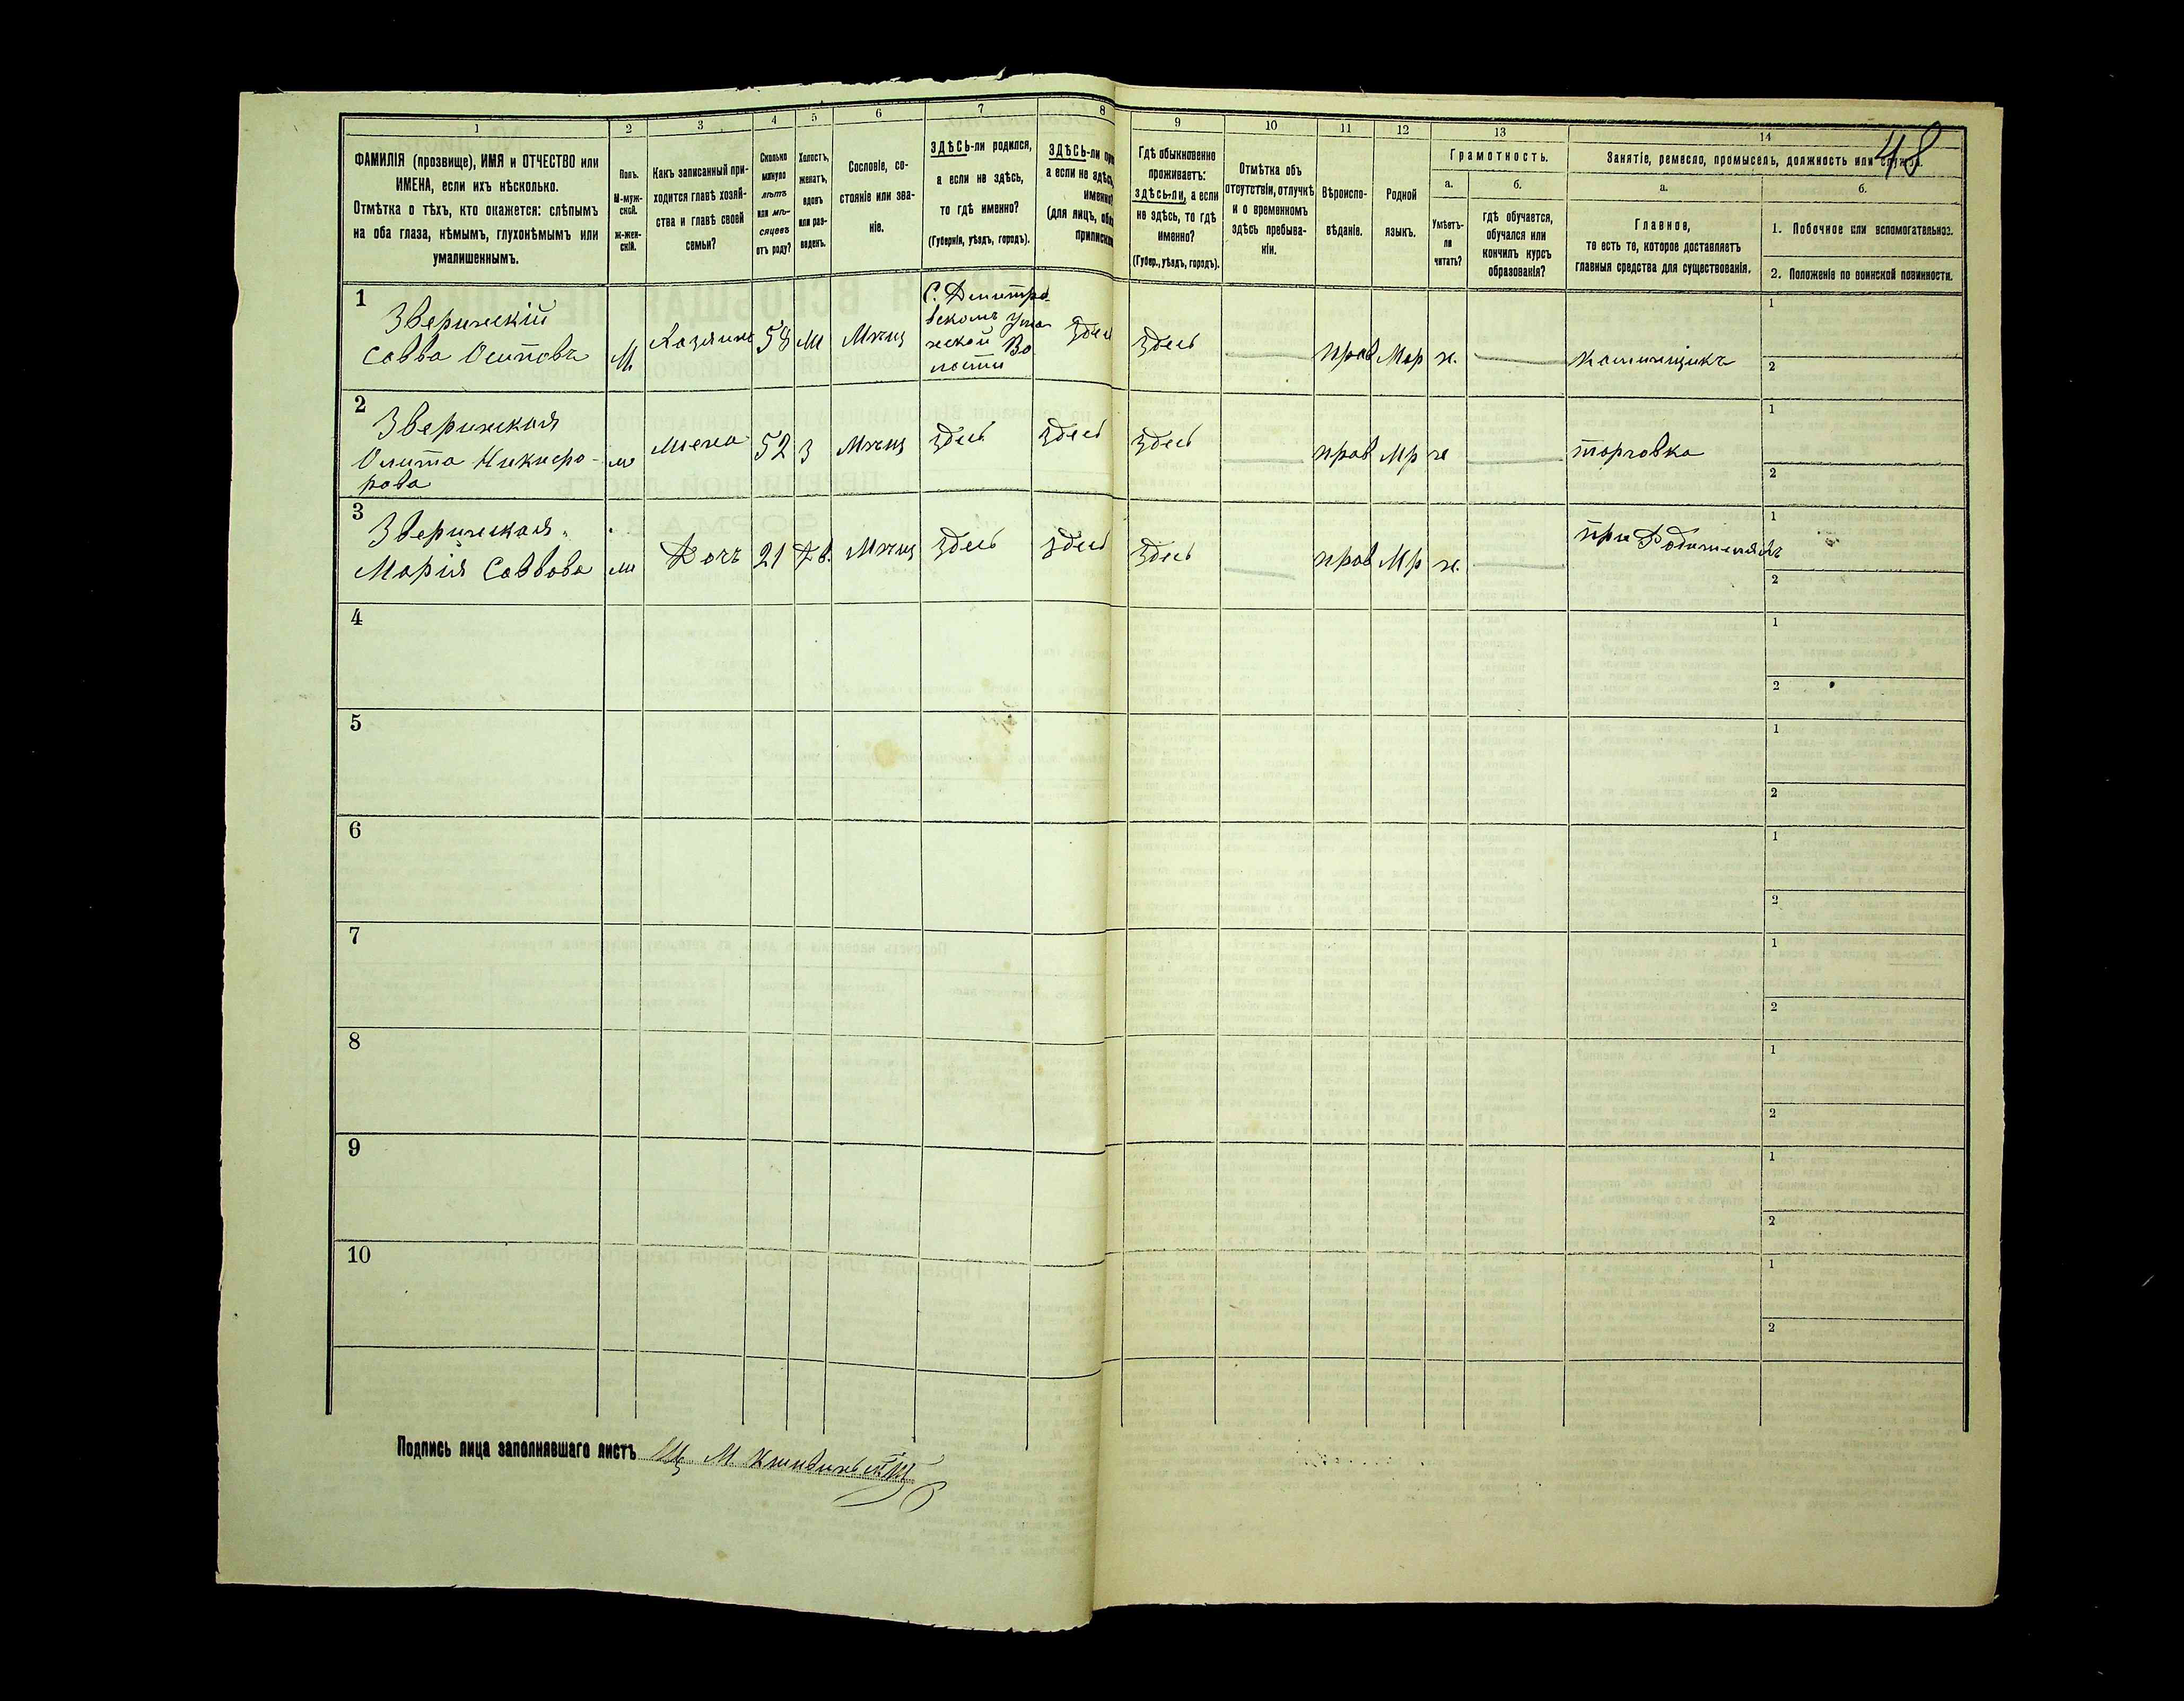 48
1 2 3 4 5 6 7 8 9 10 11 12 13 14
ФАМИЛІЯ (прозвище), ИМЯ и ОТЧЕСТВО или
ИМЕНА, если ихъ нѣсколько.
Отмѣтка о тѣхъ, кто окажется: слѣпымъ
на оба глаза, нѣмымъ, глухонѣмымъ или
умалишеннымъ.
Полъ.
М-муж-
ской.
ж-жен-
скій.
Какъ записанный при-
ходится главѣ хозяй-
ства и главѣ своей
семьи?
Сколько
минуло
лѣтъ
или мѣ-
сяцевъ
отъ роду?
Холостъ,
женатъ,
вдовъ
или раз-
веденъ.
Сословіе, со-
стояніе или зва-
ніе.
ЗДѢСЬ-ли родился,
а если не здѣсь,
то гдѣ именно?
(Губернія, уѣздъ, городъ).
ЗДѢСЬ-ли
а если не здѣсь,
именно?
(для лицъ,
Гдѣ обыкновенно
проживаетъ:
ЗДѢСЬ-ли, а если
не здѣсь, то гдѣ
именно?
(Губер., уѣздъ, городъ).
Отмѣтка объ
отсутствіи, отлучкѣ
и о временномъ
здѣсь пребыва-
ніи.
Вѣроиспо-
вѣданіе.
Родной
языкъ.
Грамотность.
а.
Умѣетъ-
ли
читать?
б.
гдѣ обучается,
обучался или
кончилъ курсъ
образованія?
Занятіе, ремесло, промыселъ, должность или служба.
а.
Главное,
то есть то, которое доставляетъ
главныя средства для существованія.
б.
1. Побочное или вспомогательное.
2. Положеніе по воинской повинности.
1
Савва Осиповъ
М
Хозяинъ 58
С. Дмитро-
вскомъ
здесь
здесь
прав
н.
1
2
2
Никифо-
рова
52 з
здесь здесь здесь
прав
н
торговка
1
2
3
Марія Саввова
Дочъ 21 Дв.
здесь здесь здесь
прав
н.
при Родителяхъ
1
2
4
1
2
5
1
2
6
1
2
7
1
2
8
1
2
9
1
2
10
1
2
Подпись лица заполнявшаго листъ